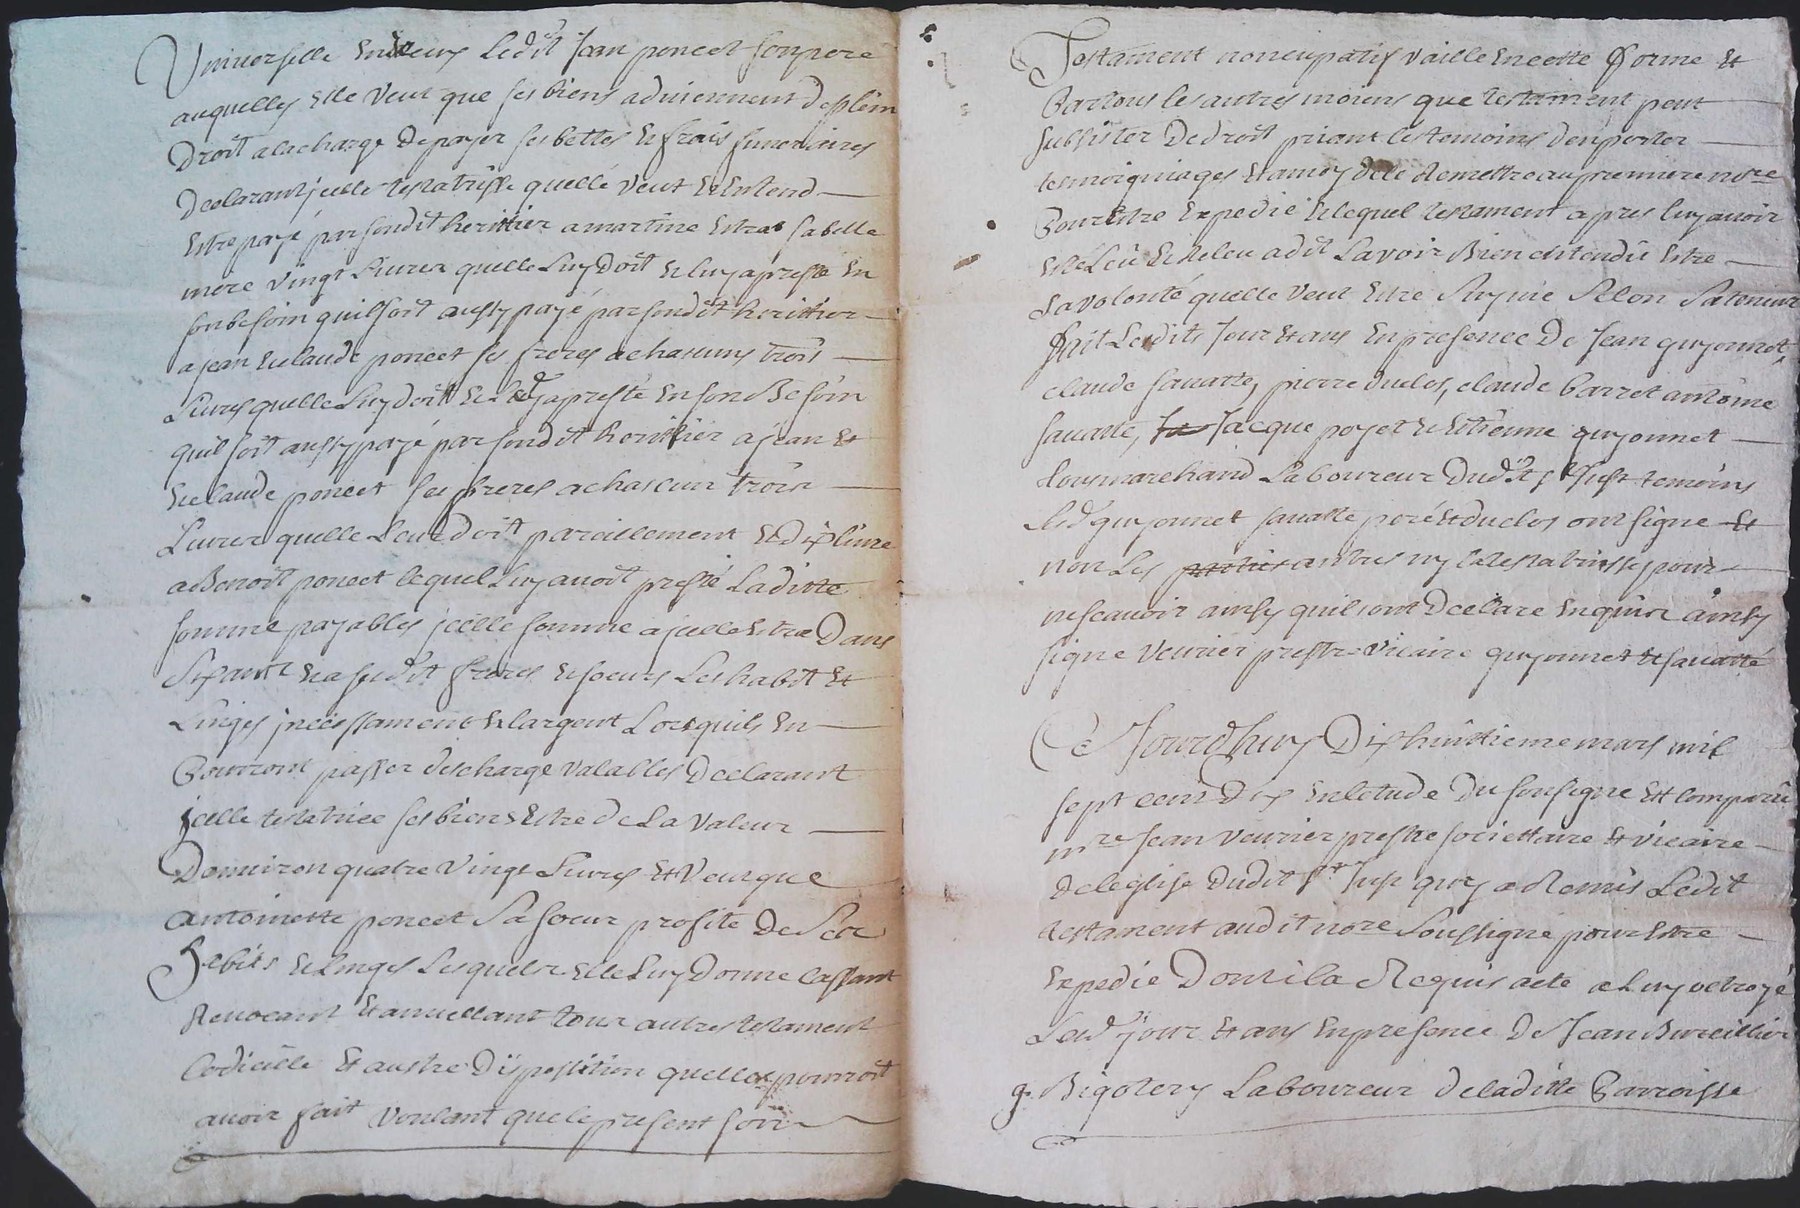 Universelle Ledit Jean poncet son pere
auquelles Elle veut que ses biens adviennent de plein
Droit a la charge de payer ses dettes & frais funeraires
Declarant jcelle testatrisse quelle veut & Entend
Estre payé par sondit heritier a martine Estra sa belle
mere vingt Livres quelle Luy doit & luy a preste En
son besoin quil soit aussy payé par sondit heritier
a jean & claude poncet ses freres a chascuns trois
Livres quelle Luy doit & a presté En son Besoin
quil soit aussy payé par sondit heritier a jean Et
& claude poncet ses freres a chascun trois
Livres quelle Leur doit pareillement Et dix livre
a Benoit poncet lequel Luy avoit presté Laditte
somme payables jcelle somme a jcelle Estra Dans
Six & a sesdit freres & soeurs Les habit Et
Linges jncessament & largent Lorsquils En
Pourront passer descharge valables Declarant
jcelle testatrice ses biens Estre de La valeur
Denviron quatre vingt Livres Et veut que
antoinette poncet Sa soeur profite De Ses
habits & linges Lesquels Elle Luy Donne Cassant
Revocant Et annullant tous autres testament
Codicille Et autre Disposition quelle pourroit
avoir fait voulant que le present son
Testament noncupatif vaille En cette forme Et
Par tous les autres moiens que testament peut
subsister De droit priant les temoins den porter
temoigniages Et a moy de le Remettre au premiere no.re
Pour Estre Expedie & lequel testament apres luy avoir
Esté Leü & Releu a dit Lavoir Bien entendü Estre
Sa volonté quelle veut Estre Suyvie Selon Sa teneur
fait Lesdits Jour & ans En presence De Jean guyonnet
claude savatte, pierre duclos, claude barret antoine
savatte, Jacque poyet & Etienne guyonnet
tous marchand Laboureur Dudit St Just temoins
Lesd guyonnet savatte & duclos ont signe Et
non Les autres ny la testatrisse pour
ne scavoir ainsy quil ont Declare Enquis ainsy
signe Veurier prestre vicaire guyonnet & savatté
Ce Jourdhuy Dixhuitieme mars mil
sept cent Dix En letude Du sousigne Est comparü
m.re Jean veurier prestre societtaire Et vicaire
De leglise Dudit St Just quy a Remis Ledit
testament audit no.re Soussigne pour Estre
Expedie Dont il a Requis acte a Luy octroyé
Lesd jour Et ans En presence De Jean Bureillier
g. Bigotery Laboureur De laditte Parroisse